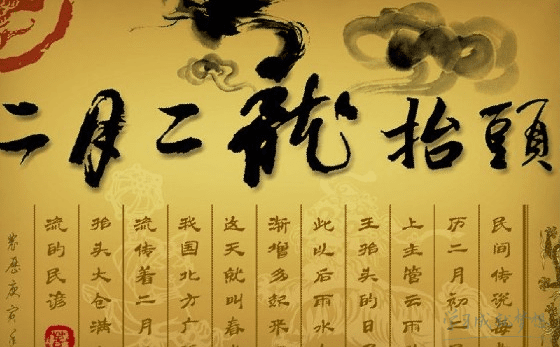 二月二龍抬頭
民间传说每
历二月初二
上主管云雨
王抬头的日
此以后雨水
渐增多起来
这天就叫春
我国北方广
流传着二月
抬头大仓满
流的民谚
农历庚寅年